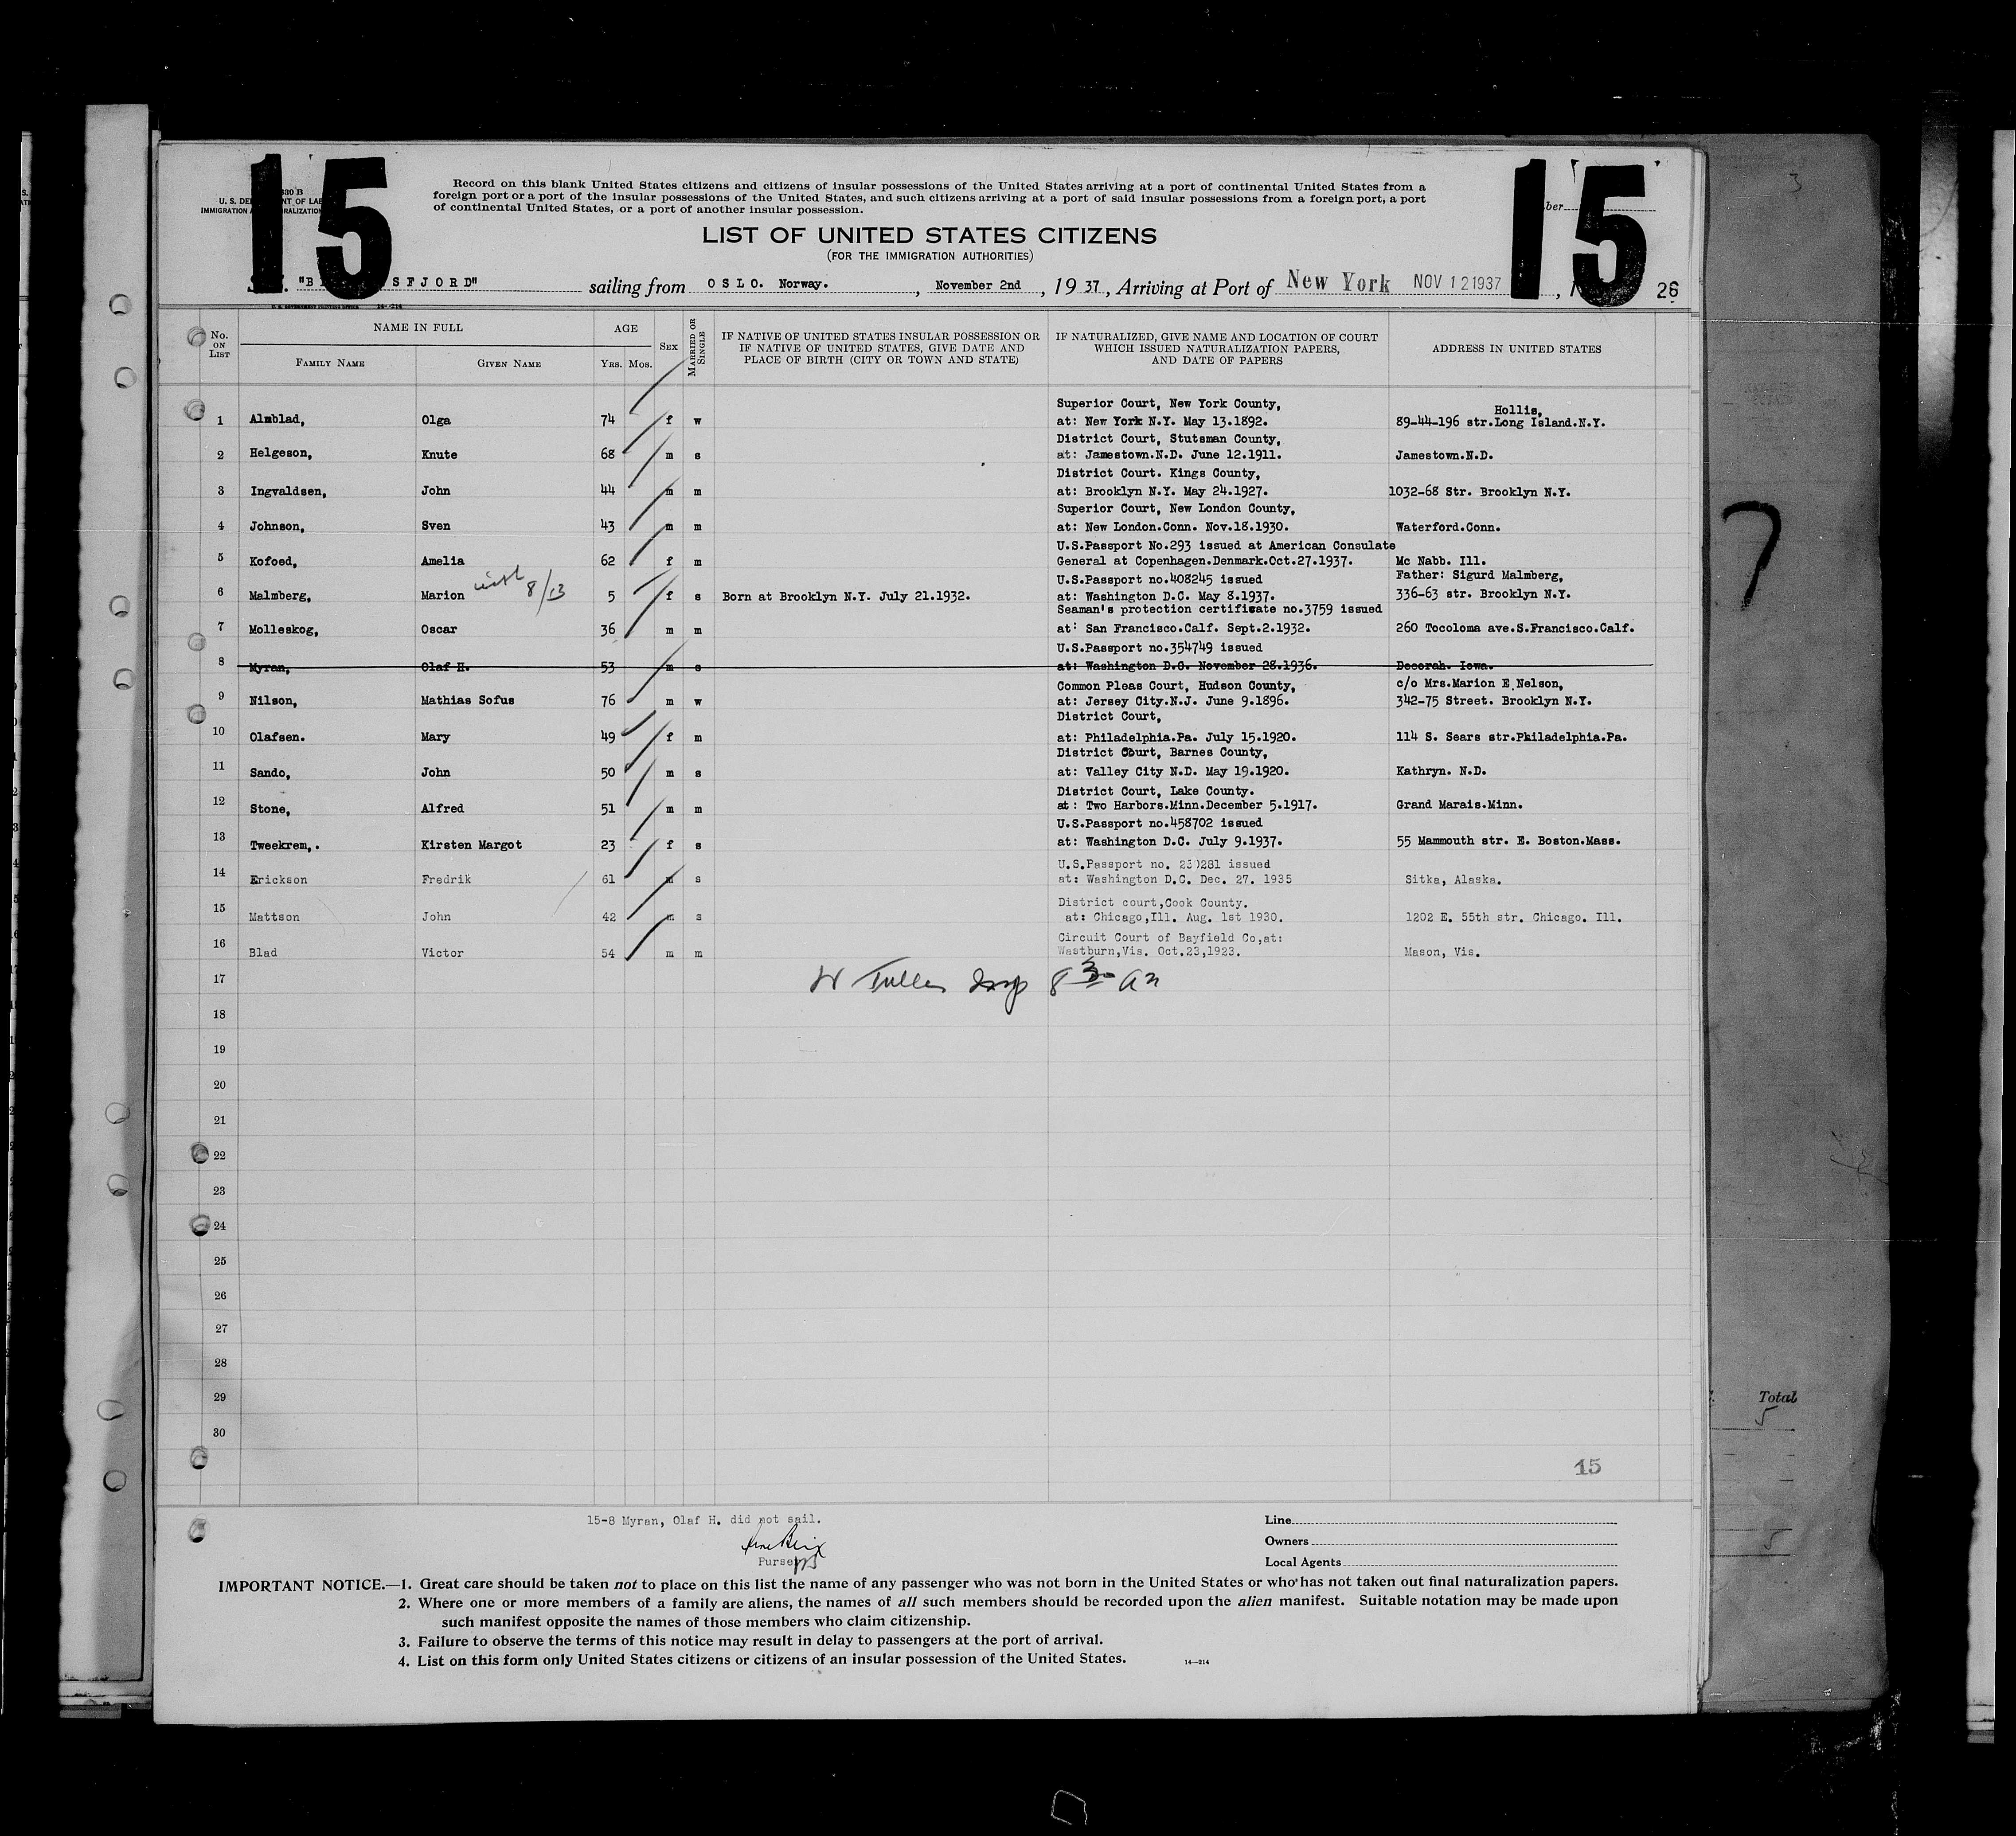 15
15
Record on this blank United States citizens and citizens of insular possessions of the United States arriving at a port of continental United States from a
foreign port or a port of the insular possessions of the United States, and such citizens arriving at a port of said insular possessions from a foreign port, a port
of continental United States, or a port of another insular possession.
LIST OF UNITED STATES CITIZENS
(FOR THE IMMIGRATION AUTHORITIES)
SFJORD" sailing from OSLO. Norway., November 2nd, 1937, Arriving at Port of New York NOV 12 1937
26
No. ON LIST
NAME IN FULL
FAMILY NAME GIVEN NAME
AGE
YRS. MOS.
SEX
MARRIED OR SINGLE
IF NATIVE OF UNITED STATES INSULAR POSSESSION OR
IF NATIVE OF UNITED STATES, GIVE DATE AND
PLACE OF BIRTH (CITY OR TOWN AND STATE)
IF NATURALIZED, GIVE NAME AND LOCATION OF COURT
WHICH ISSUED NATURALIZATION PAPERS,
AND DATE OF PAPERS
ADDRESS IN UNITED STATES
Superior Court, New York County, Hollis,
1 Almblad, Olga 74 f w at: New York N.Y. May 13.1892. 89-44-196 str.Long Island.N.Y.
District Court, Stutsman County,
2 Helgeson, Knute 68 m s at: Jamestown.N.D. June 12.1911. Jamestown.N.D.
District Court. Kings County,
3 Ingvaldsen, John 44 m m at: Brooklyn N.Y. May 24.1927. 1032-68 Str. Brooklyn N.Y.
Superior Court, New London County,
4 Johnson, Sven 43 m m at: New London.Conn. Nov.18.1930. Waterford.Conn.
U.S.Passport No.293 issued at American Consulate
5 Kofoed, Amelia 62 f m General at Copenhagen.Denmark.Oct.27.1937. Mc Nabb. Ill.
U.S.Passport no.408245 issued Father: Sigurd Malmberg,
6 Malmberg, Marion with 8/13 5 f s Born at Brooklyn N.Y. July 21.1932. at: Washington D.C. May 8.1937. 336-63 str. Brooklyn N.Y.
Seaman's protection certificate no.3759 issued
7 Molleskog, Oscar 36 m m at: San Francisco.Calf. Sept.2.1932. 260 Tocoloma ave.S.Francisco.Calf.
U.S.Passport no.354749 issued
8 Myran, Olaf H. 53 m s at: Washington D.C. November 28.1936. Decorah. Iowa.
Common Pleas Court, Hudson County, c/o Mrs.Marion E.Nelson,
9 Nilson, Mathias Sofus 76 m w at: Jersey City.N.J. June 9.1896. 342-75 Street. Brooklyn N.Y.
District Court,
10 Olafsen. Mary 49 f m at: Philadelphia.Pa. July 15.1920. 114 S. Sears str.Philadelphia.Pa.
District Court, Barnes County,
11 Sando, John 50 m s at: Valley City N.D. May 19.1920. Kathryn. N.D.
District Court, Lake County.
12 Stone, Alfred 51 m m at: Two Harbors.Minn.December 5.1917. Grand Marais.Minn.
U.S.Passport no.458702 issued
13 Tweekrem,. Kirsten Margot 23 f s at: Washington D.C. July 9.1937. 55 Mammouth str. E. Boston.Mass.
U.S.Passport no. issued
14 Erickson Fredrik 61 m s at: Washington D.C. Dec. 27. 1935 Sitka, Alaska.
District court,Cook County.
15 Mattson John 42 m s at: Chicago,Ill. Aug. 1st 1930. 1202 E. 55th str. Chicago. Ill.
Circuit Court of Bayfield Co,at:
16 Blad Victor 54 m m Wastburn,Vis. Oct.23,1923. Mason, Vis.
17
18
19
20
21
22
23
24
25
26
27
28
29
30
15
15-8 Myran, Olaf H. did not sail.
Purser
Line
Owners
Local Agents
IMPORTANT NOTICE.—1. Great care should be taken not to place on this list the name of any passenger who was not born in the United States or who has not taken out final naturalization papers.
2. Where one or more members of a family are aliens, the names of all such members should be recorded upon the alien manifest. Suitable notation may be made upon
such manifest opposite the names of those members who claim citizenship.
3. Failure to observe the terms of this notice may result in delay to passengers at the port of arrival.
4. List on this form only United States citizens or citizens of an insular possession of the United States.
14—214
Total
5
5